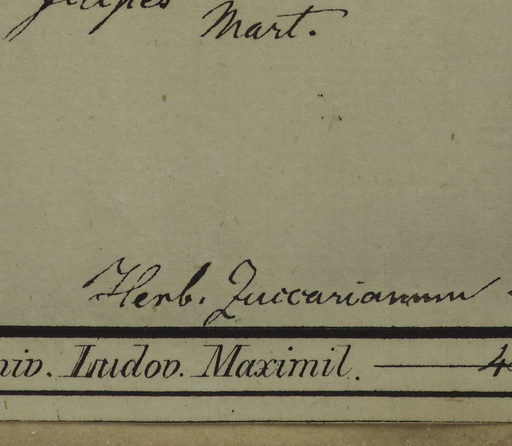 Mart.
Herb. Zuccarianum
niv. Ludov. Maximil.